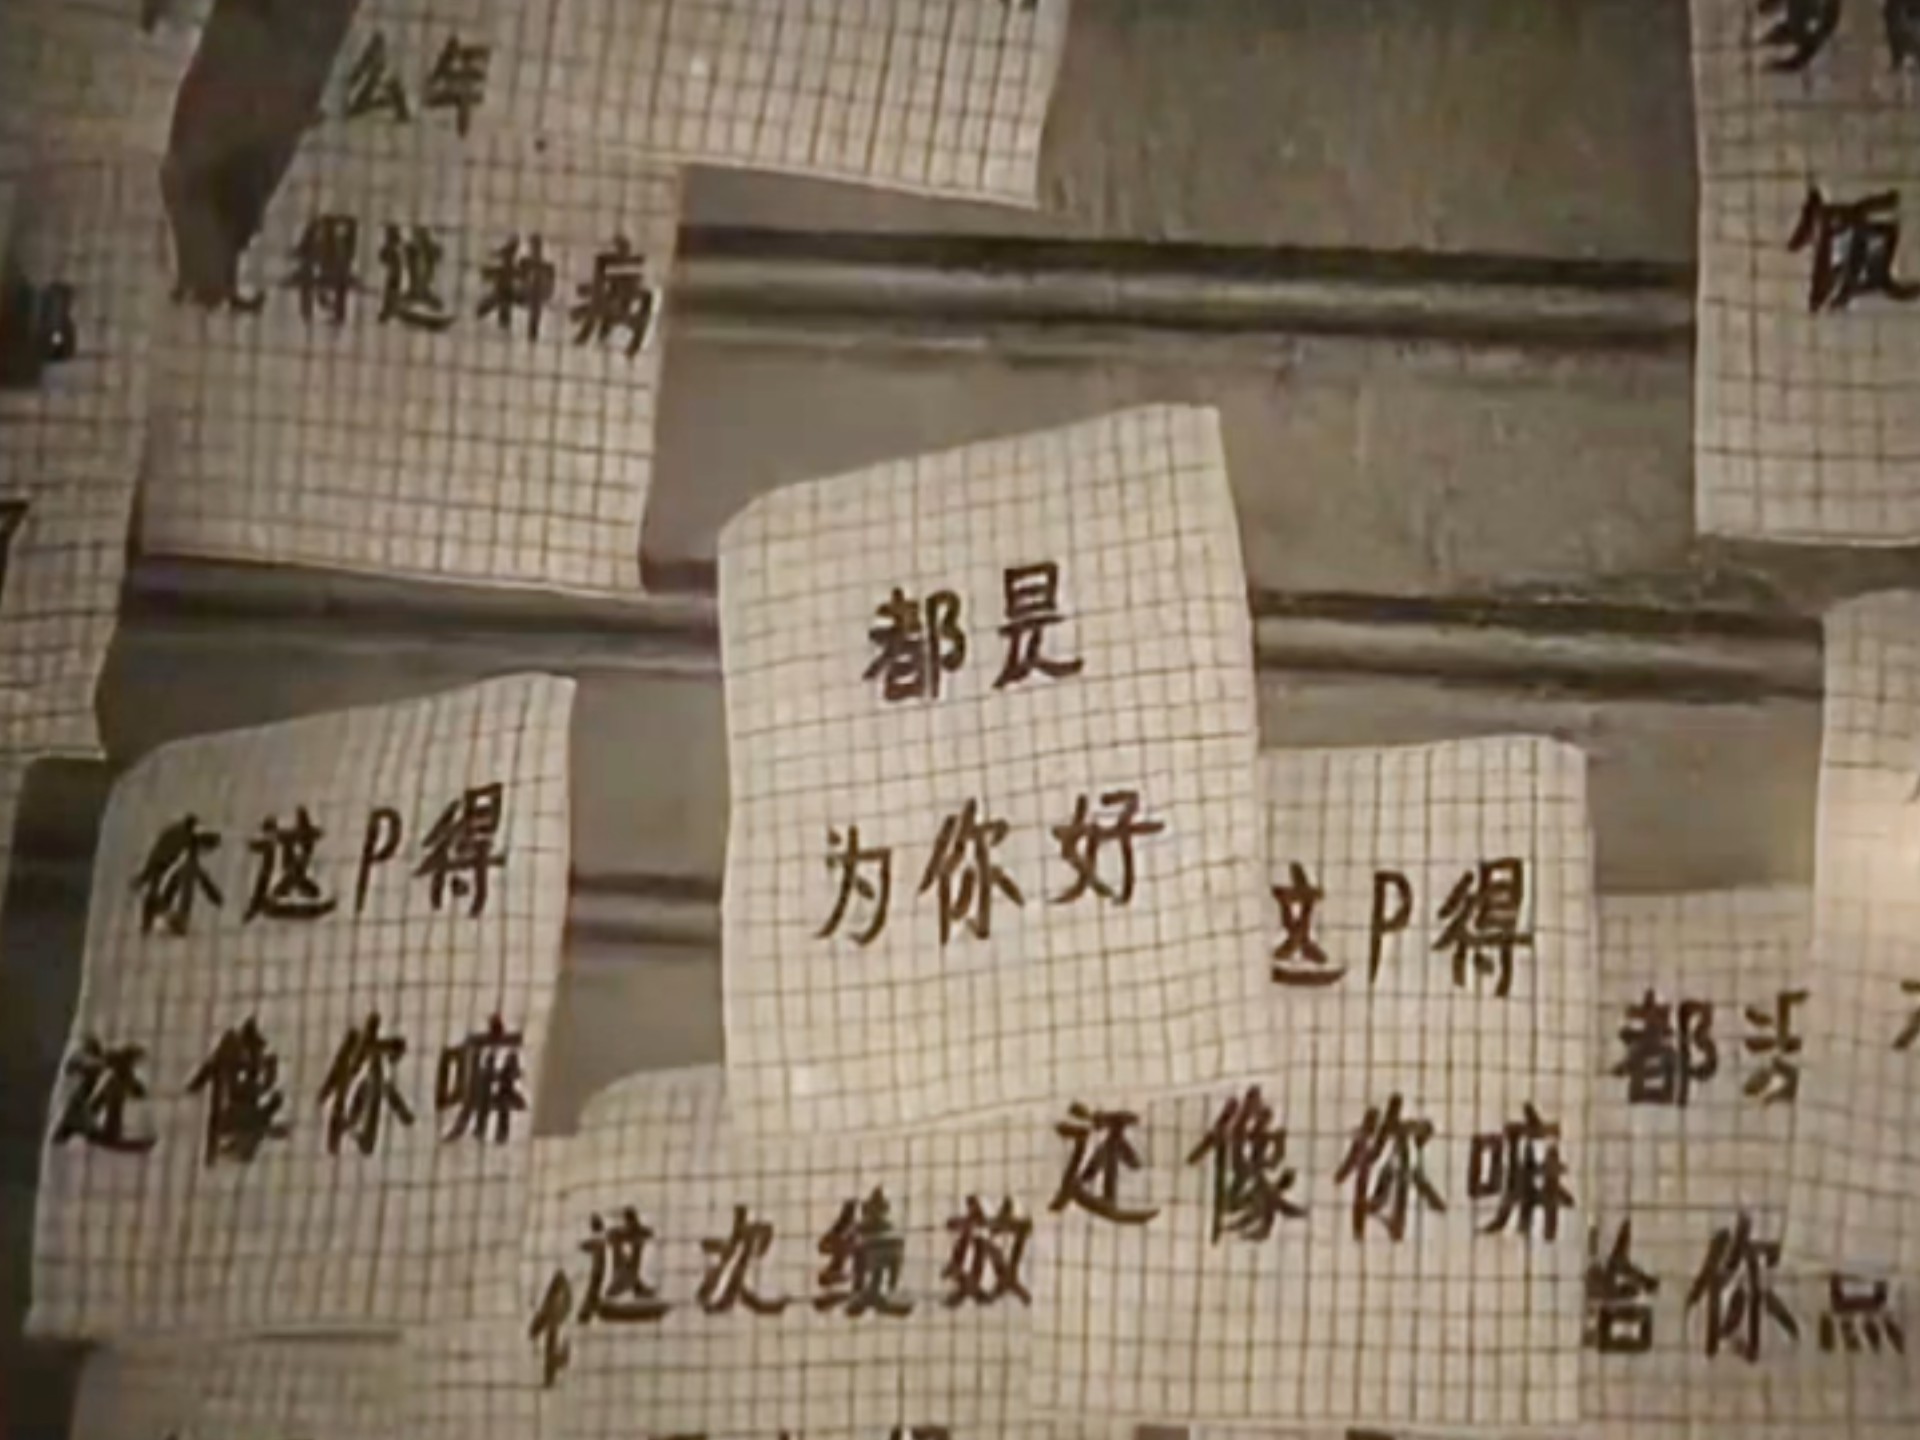 么年
得这种病
饭
都是
为你好
你这P得
还像你嘛
这P得
还像你嘛
都没
给你点
这次绩效